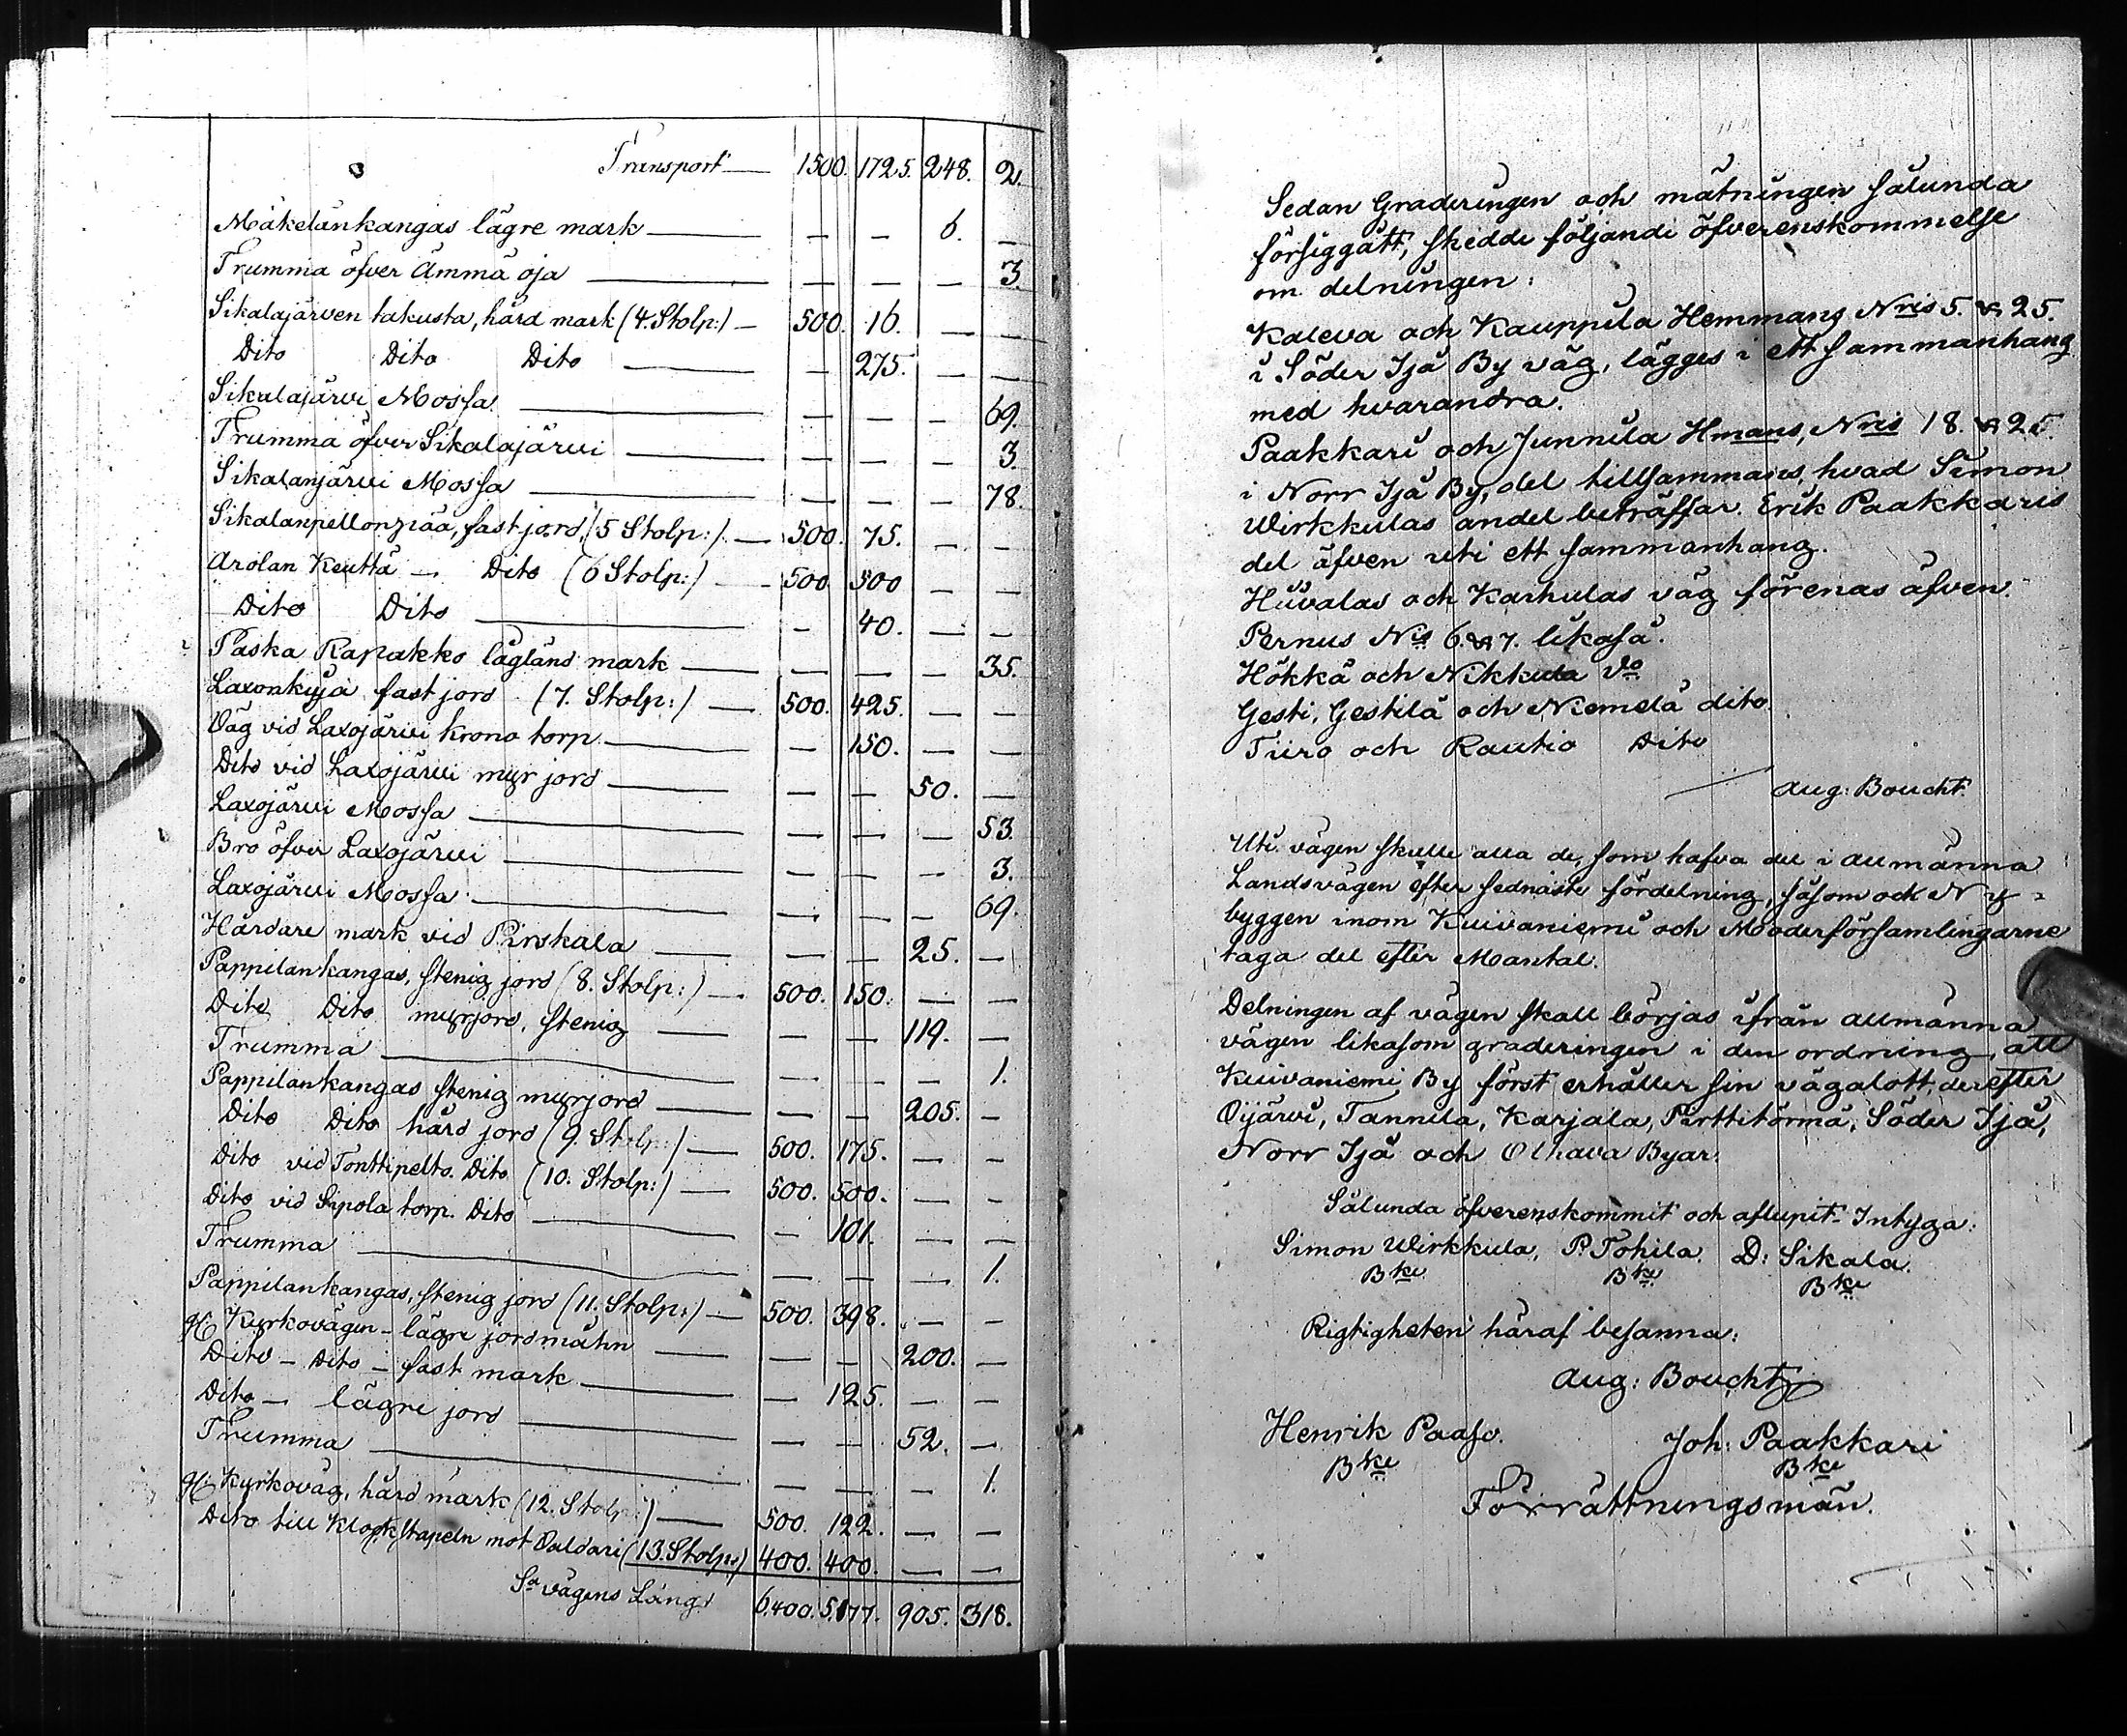 Transport — 1500. 1725. 248. 2.
Mäkelänkangas lägre mark — — — 6. —
Trumma öfver Ämmä oja — — — — 3.
Sikalajärven takusta, hård mark (4. Stolp:) — 500. 16. — —
Dito Dito Dito — — 275. — —
Sikalajärvi Mossa. — — — — 69.
Trumma öfver Sikalajärvi — — — — 3.
Sikalanjärvi Mossa — — — — 78.
Sikalanpellonpää, fast jord, (5 Stolp:) — 500. 75. — —
Arolan Keuttä — Dito (6 Stolp:) — 500 500 — —
Dito Dito — — 40. — —
Paska Rapakko lågländ mark — — — — 35.
Laxonkuja fast jord (7. Stolp:) — 500. 425. — —
Väg vid Laxojärvi krono torp. — — 150. — —
Dito vid Laxojärvi myr jord — — — 50. —
Laxojärvi Mossa — — — — 53.
Bro öfver Laxojärvi — — — — 3.
Laxojärvi Mossa. — — — — 69.
Hårdare mark vid Pirskala — — — 25. —
Pappilankangas, stenig jord (8. Stolp:) — 500. 150. — —
Dito Dito myrjord, stenig — — — 119. —
Trumma — — — — 1.
Pappilankangas stenig myrjord — — — 205. —
Dito Dito hård jord (9. Stolp:) — 500. 175. — —
Dito vid Tonttipelto. Dito (10. Stolp:) — 500. 500. — —
Dito vid Sipola torp. Dito — — 101. — —
Trumma — — — — 1.
Pappilankangas, stenig jord (11. Stolp:) — 500. 398. — —
Kyrkovägen — lägre jordmåhn — — — 200. —
Dito — Dito — fast mark — — 125. — —
Dito — lägre jord — — — 52. —
Trumma — — — — 1.
Kyrkoväg, hård mark (12. Stolp:) — 500. 122. — —
Dito till Klockstapeln mot Valdari (13. Stolp:) 400. 400. — —
Sa vägens Längd 6,400. 5,177. 905. 318.
Sedan Graderingen och mätningen sålunda
försiggått, skedde följande öfverenskommelse
om delningen:
Kaleva och Kauppila Hemmans Nris 5. & 25.
i Söder Ijå By väg, lägges i ett sammanhang
med hvarandra.
Paakkari och Junnila Hmans, Nris 18. & 25.
i Norr Ijå By, del tillsammans, hvad Simon
Wirkkulas andel beträffar. Erik Paakkaris
del äfven uti ett sammanhang.
Huvalas och Karhulas väg förenas äfven.
Pernus Nis 6. & 7. likaså.
Hökkä och Nikkula do
Gesti, Gestilä och Niemelä dito.
Tiiro och Rautio Dito
Aug: Boucht.
Uti vägen skulle alla de, som hafva del i allmänna
Landsvägen efter sednaste fördelning, såsom ock Ny-
byggen inom Kuivaniemi och Moderförsamlingarne
taga del efter Mantal.
Delningen af vägen skall börjas ifrån allmänna
vägen likasom graderingen i den ordning, att
Kuivaniemi By först erhåller sin vägalott, derefter
Oijärvi, Tannila, Karjala, Pirttitörmä, Söder Ijå,
Norr Ijå och Olhava Byar.
Sålunda öfverenskommit och aflupit. Intyga:
Simon Wirkkula, P. Tohila. D: Sikala.
Bke Bke Bke
Rigtigheten häraf besanna:
Aug: Boucht
Henrik Paaso. Joh: Paakkari
Bke Bke
Förrättningsmän.